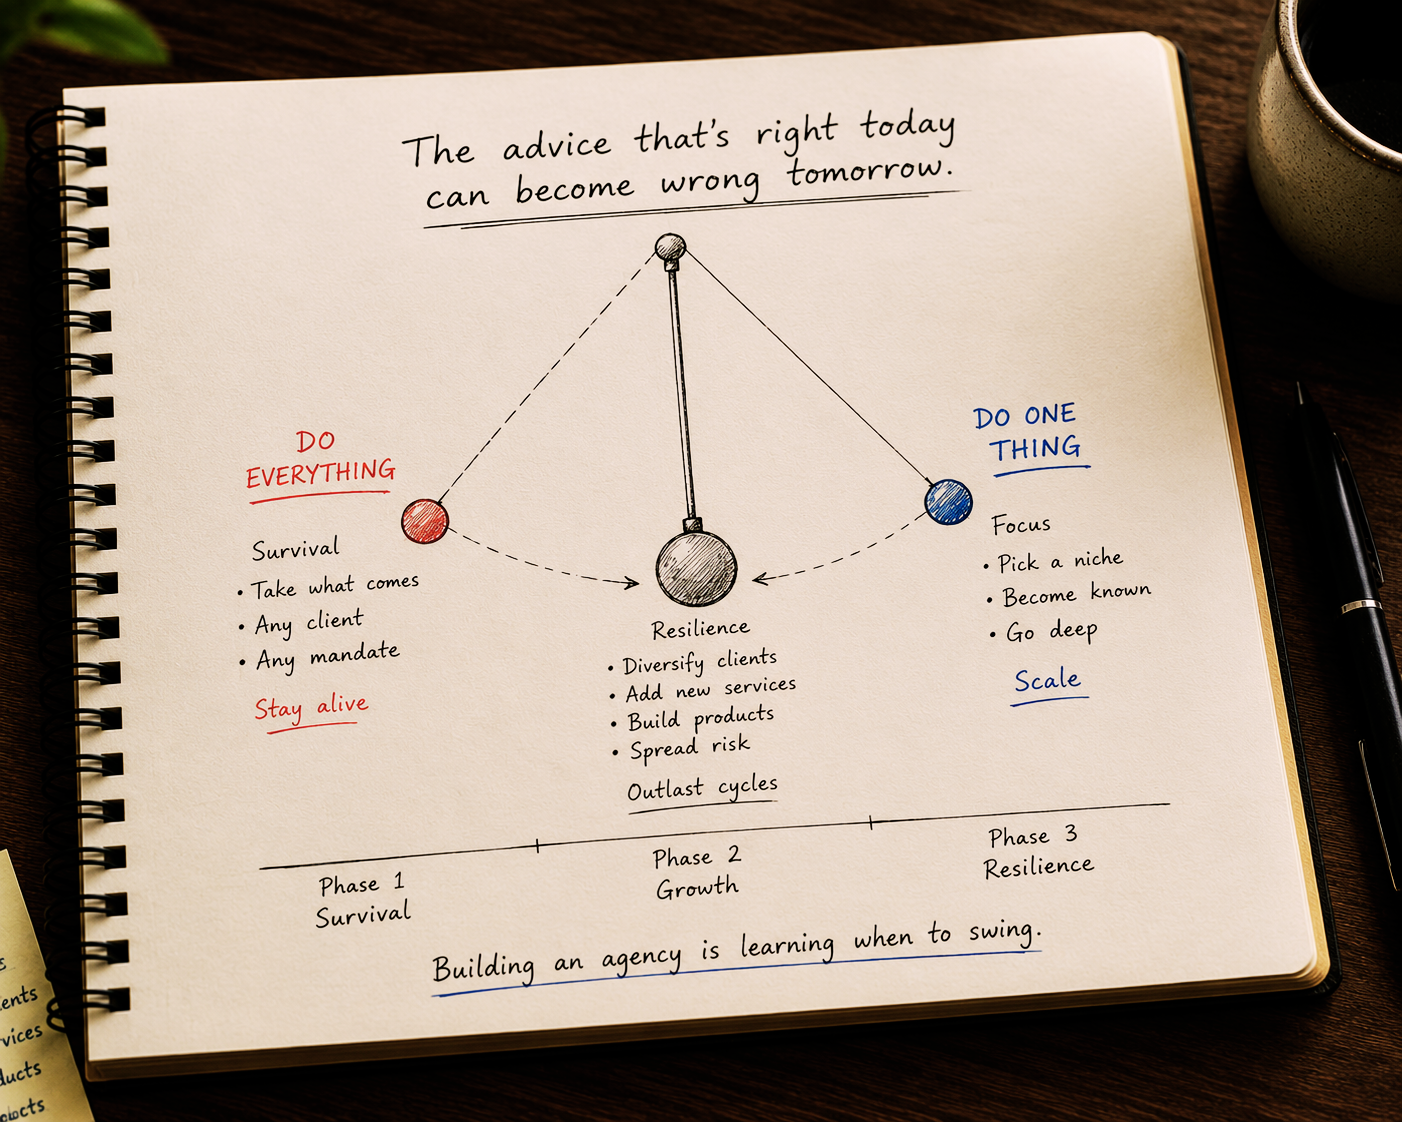 The advice that's right today
can become wrong tomorrow.
DO
EVERYTHING
Survival
• Take what comes
• Any client
• Any mandate
Stay alive
Resilience
• Diversify clients
• Add new services
• Build products
• Spread risk
Outlast cycles
DO ONE
THING
Focus
• Pick a niche
• Become known
• Go deep
Scale
Phase 1
Survival
Phase 2
Growth
Phase 3
Resilience
Building an agency is learning when to swing.